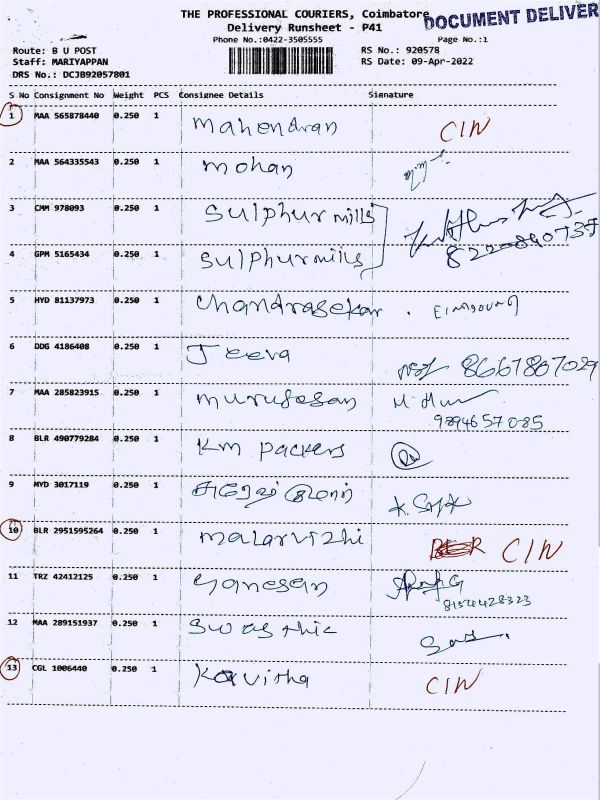 THE PROFESSIONAL COURIERS, Coimbatore
DOCUMENT DELIVER
Delivery Runsheet - P41
Phone No.:0422-3505555
Page No.:1
Route: B U POST
RS No.: 920578
Staff: MARIYAPPAN
RS Date: 09-Apr-2022
DRS No.: DCJB92057801
S No Consignment No Weight PCS Consignee Details Signature
1 MAA 565878440 0.250 1 Mahendran CIN
2 MAA 564335543 0.250 1 Mohan
3 CMM 978093 0.250 1 Sulphur mills
8220840734
4 GPM 5165434 0.250 1 Sulphur mills
5 HYD 81137973 0.250 1 Chandrasekar
6 DDG 4186408 0.250 1 Jeeva 8667867029
7 MAA 285823915 0.250 1 Murugesan
9894657085
8 BLR 490779284 0.250 1 Km Packers
9 MYD 3017119 0.250 1
10 BLR 2951595264 0.250 1 Malarvizhi CIN
11 TRZ 42412125 0.250 1 Ganesan
12 MAA 289151937 0.250 1 Swasthic
13 CGL 1006440 0.250 1 Kavitha CIN